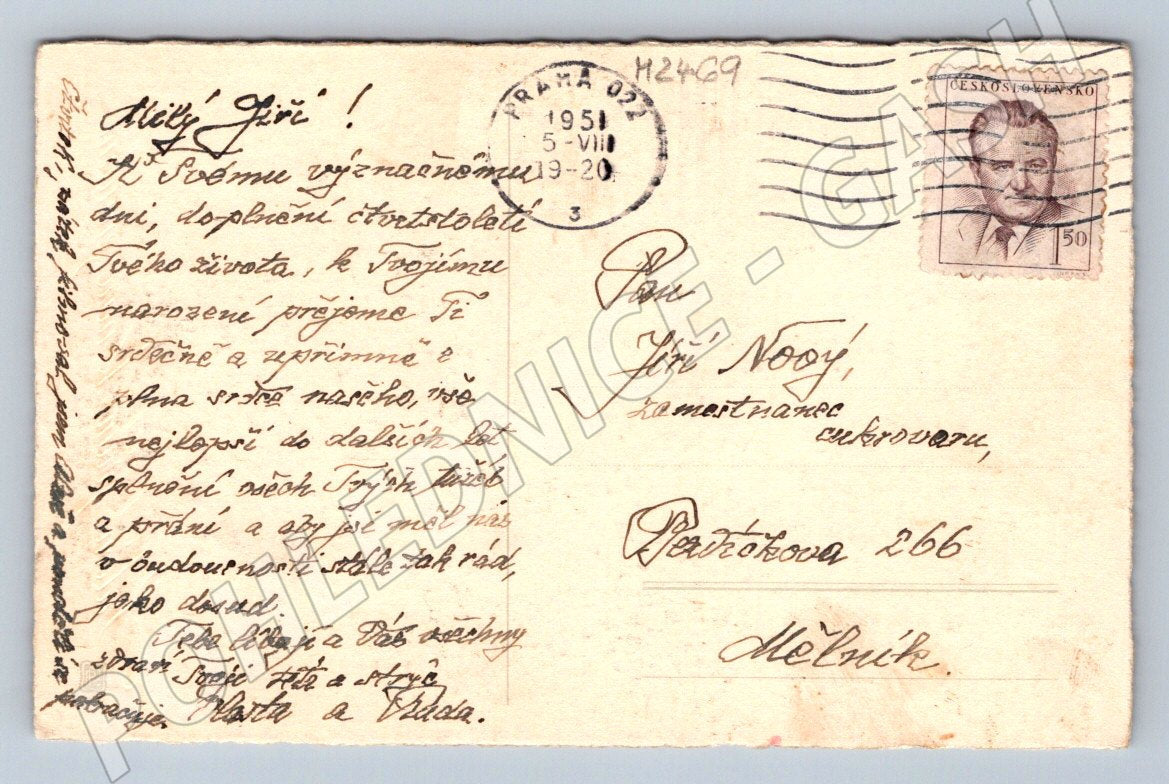 Milý Jiří!
K Svému význačnému
dni, doplnění čtvrtstoletí
Tvého života, k Tvojímu
narození přejeme Ti
srdečně a upřímně z
plna srdce našeho, vše
nejlepší do dalších let
splnění všech Tvých tužeb
a přání a aby jsi měl nás
v budoucnosti stále tak rád,
jako dosud.
Tebe líbají a Vás všechny
zdraví Tvoji teta a strýc
Vlasta a Vláda.
PRAHA 022
1951
5-VIII
19-20
3
M2469
ČESKOSLOVENSKO
1 50
Pan
Jiří Nový,
zamestnanec
cukrovaru,
Bezručkova 266
Mělník.
POHLEDNICE - GACH